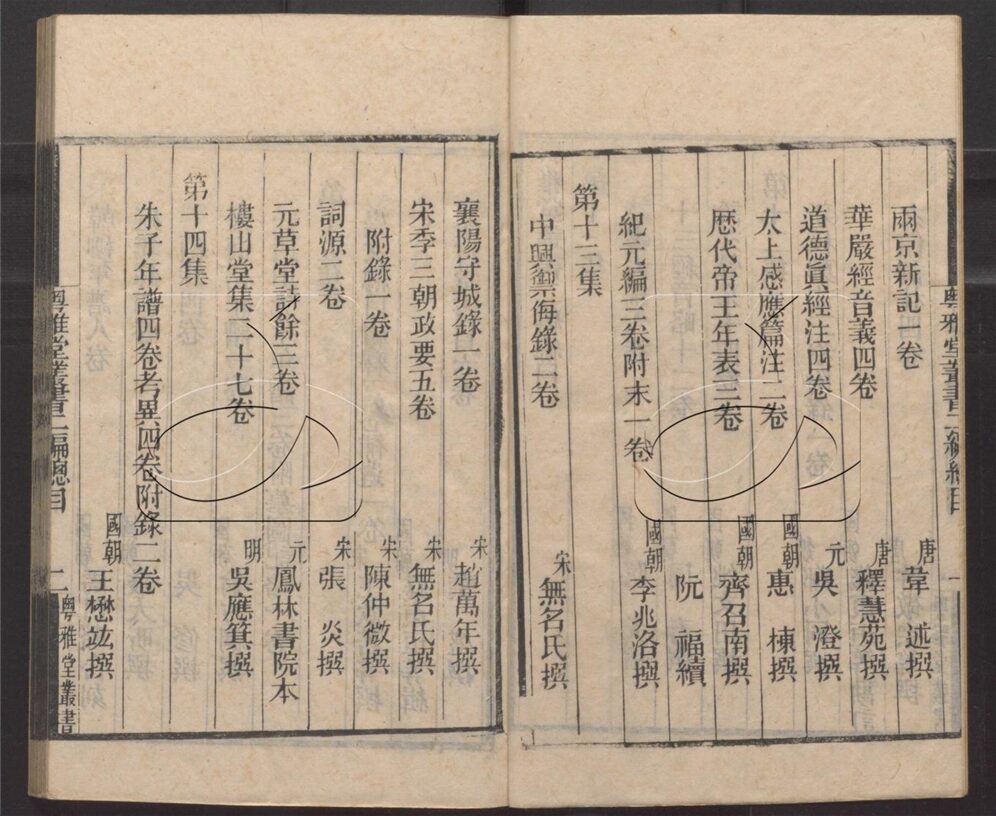 兩京新記一卷 唐韋 述撰
華嚴經音義四卷 唐釋慧苑撰
道德眞經注四卷 元吳 澄撰
太上感應篇注二卷 國朝惠 棟撰
歷代帝王年表三卷 國朝齊召南撰
阮 福續
紀元編三卷附末一卷 國朝李兆洛撰
第十三集
中興禦侮錄二卷 宋無名氏撰
襄陽守城錄一卷 宋趙萬年撰
宋季三朝政要五卷 宋無名氏撰
附錄一卷 宋陳仲微撰
詞源二卷 宋張 炎撰
元草堂詩餘三卷 元鳳林書院本
樓山堂集二十七卷 明吳應箕撰
第十四集
朱子年譜四卷考異四卷附錄二卷
國朝王懋竑撰
粵雅堂叢書二編總目 二 粵雅堂叢書